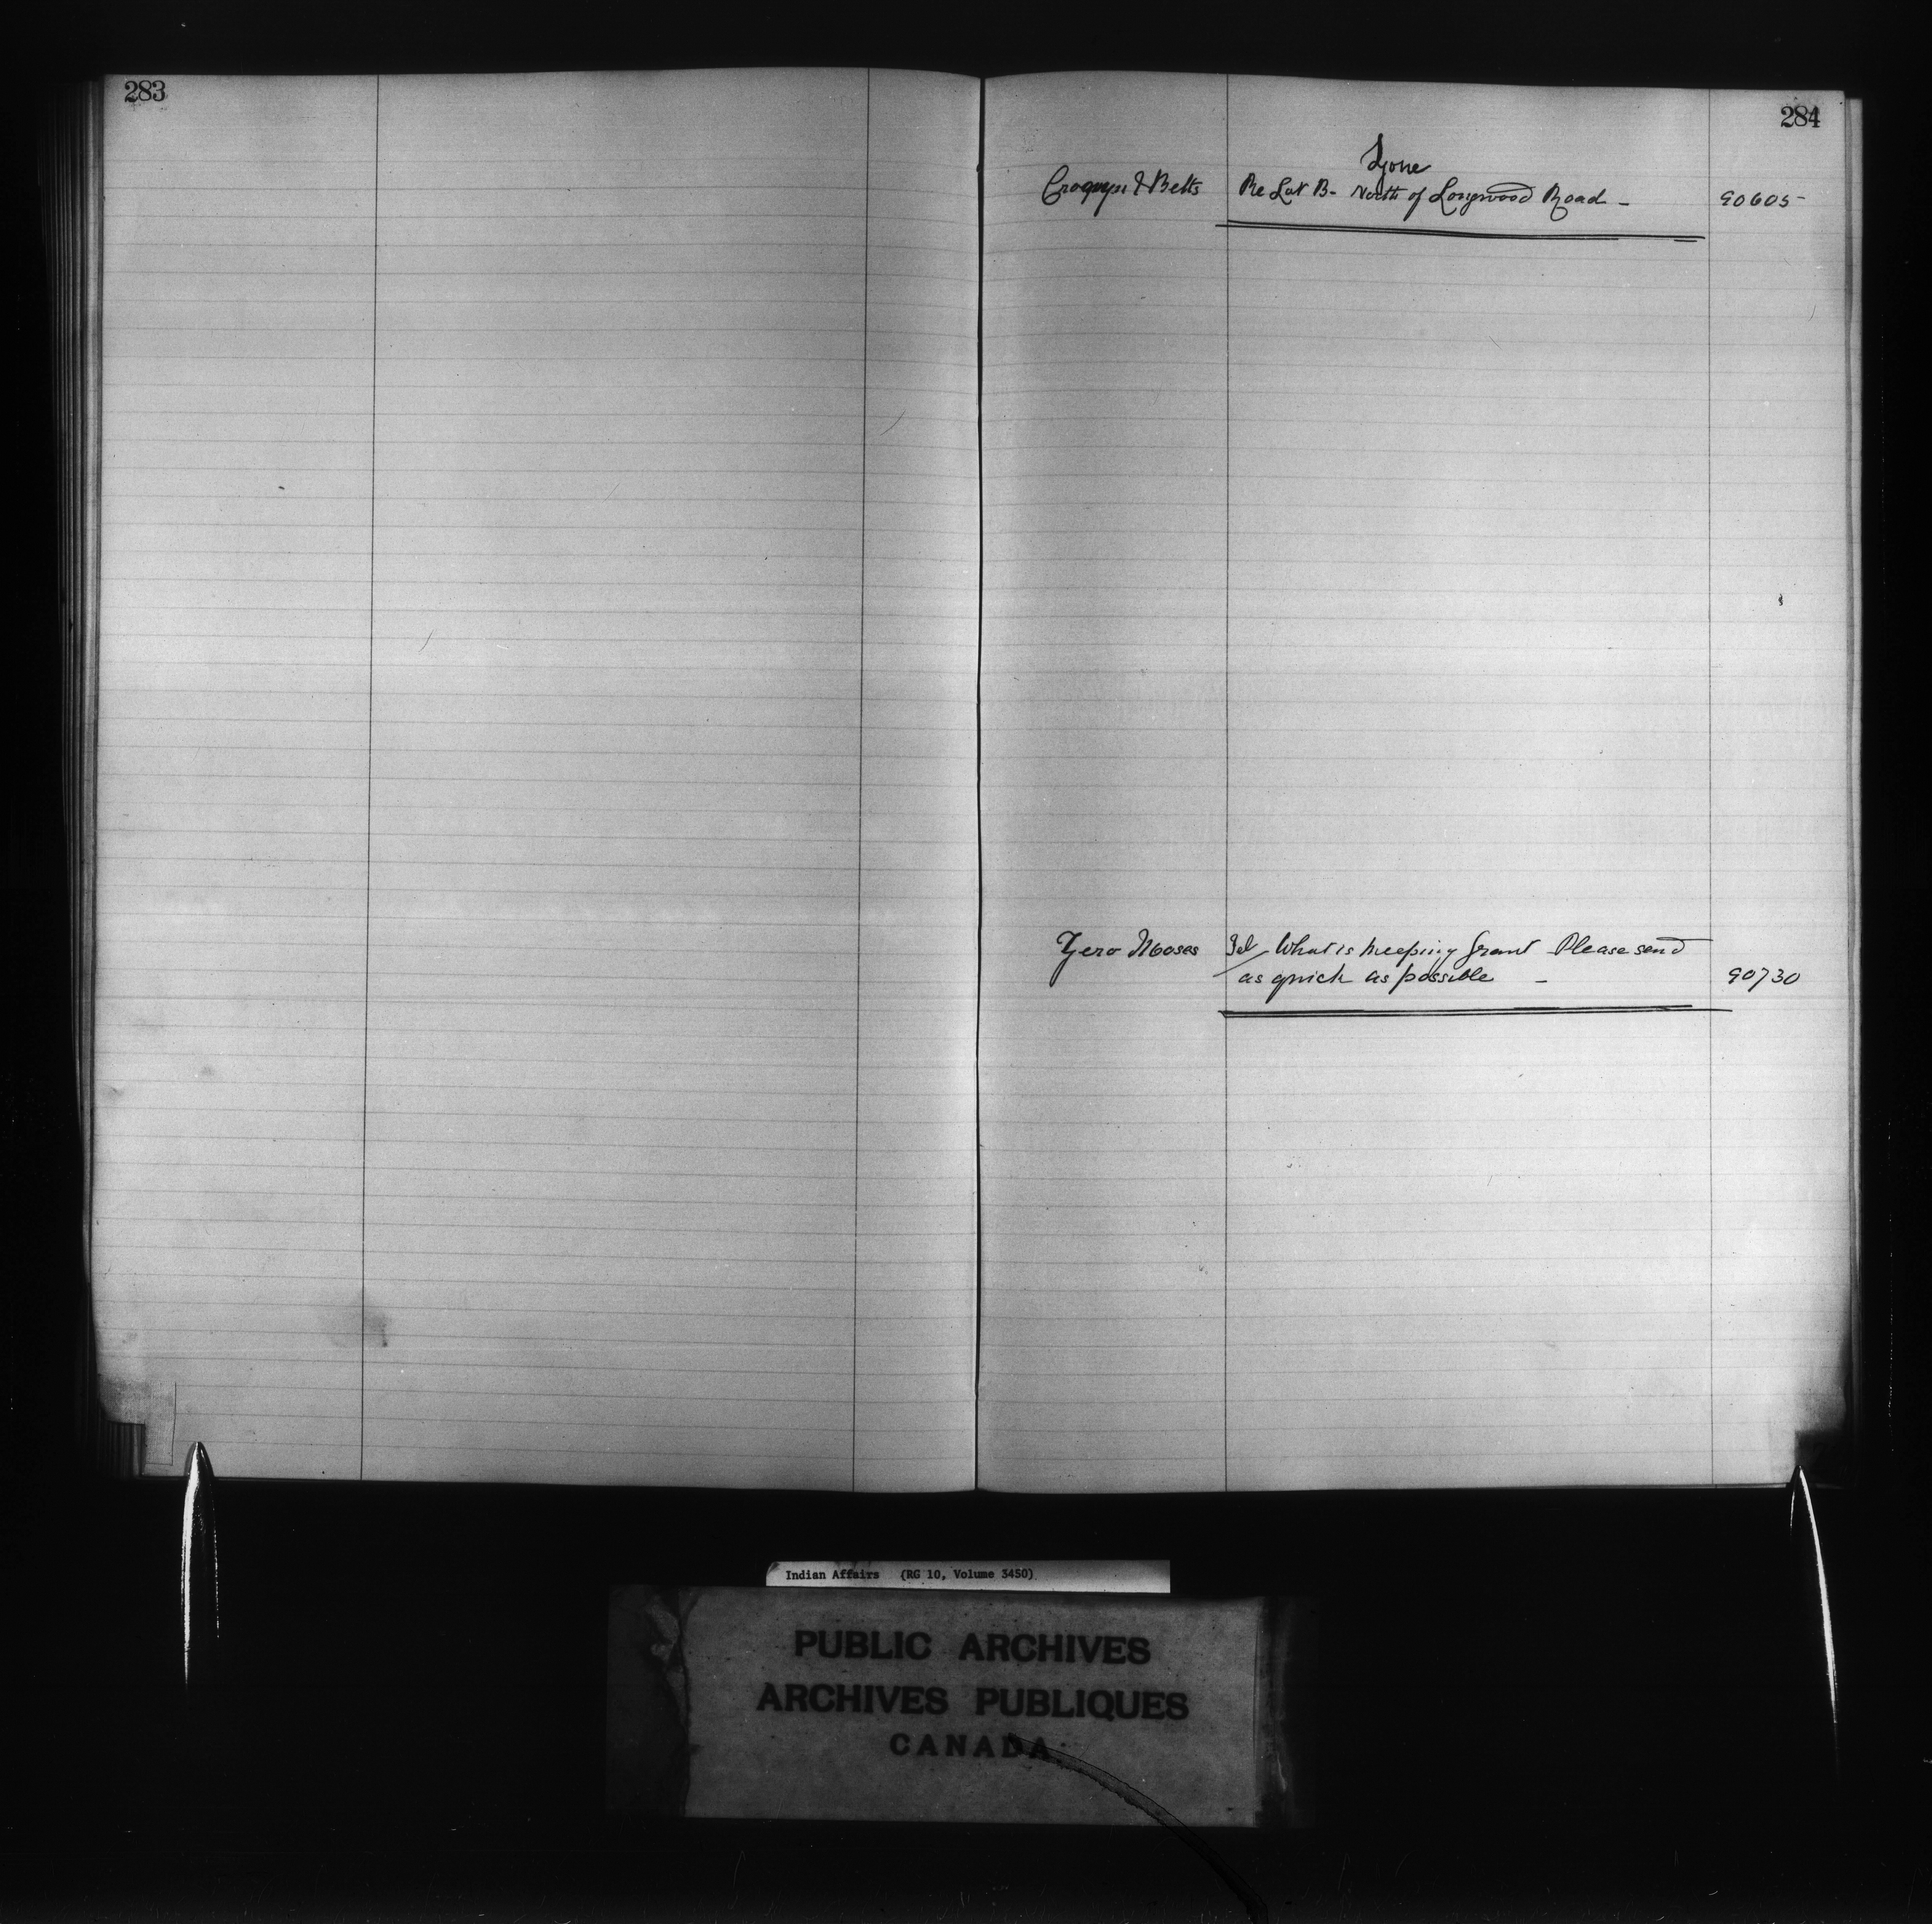 283
284
Zone
& Betts Re Lot B- North of Longwood Road - 90605
Zero Moses Tel What is keeping Grant Please send
as quick as possible - 90730
Indian Affairs (RG 10, Volume 3450)
PUBLIC ARCHIVES
ARCHIVES PUBLIQUES
CANADA